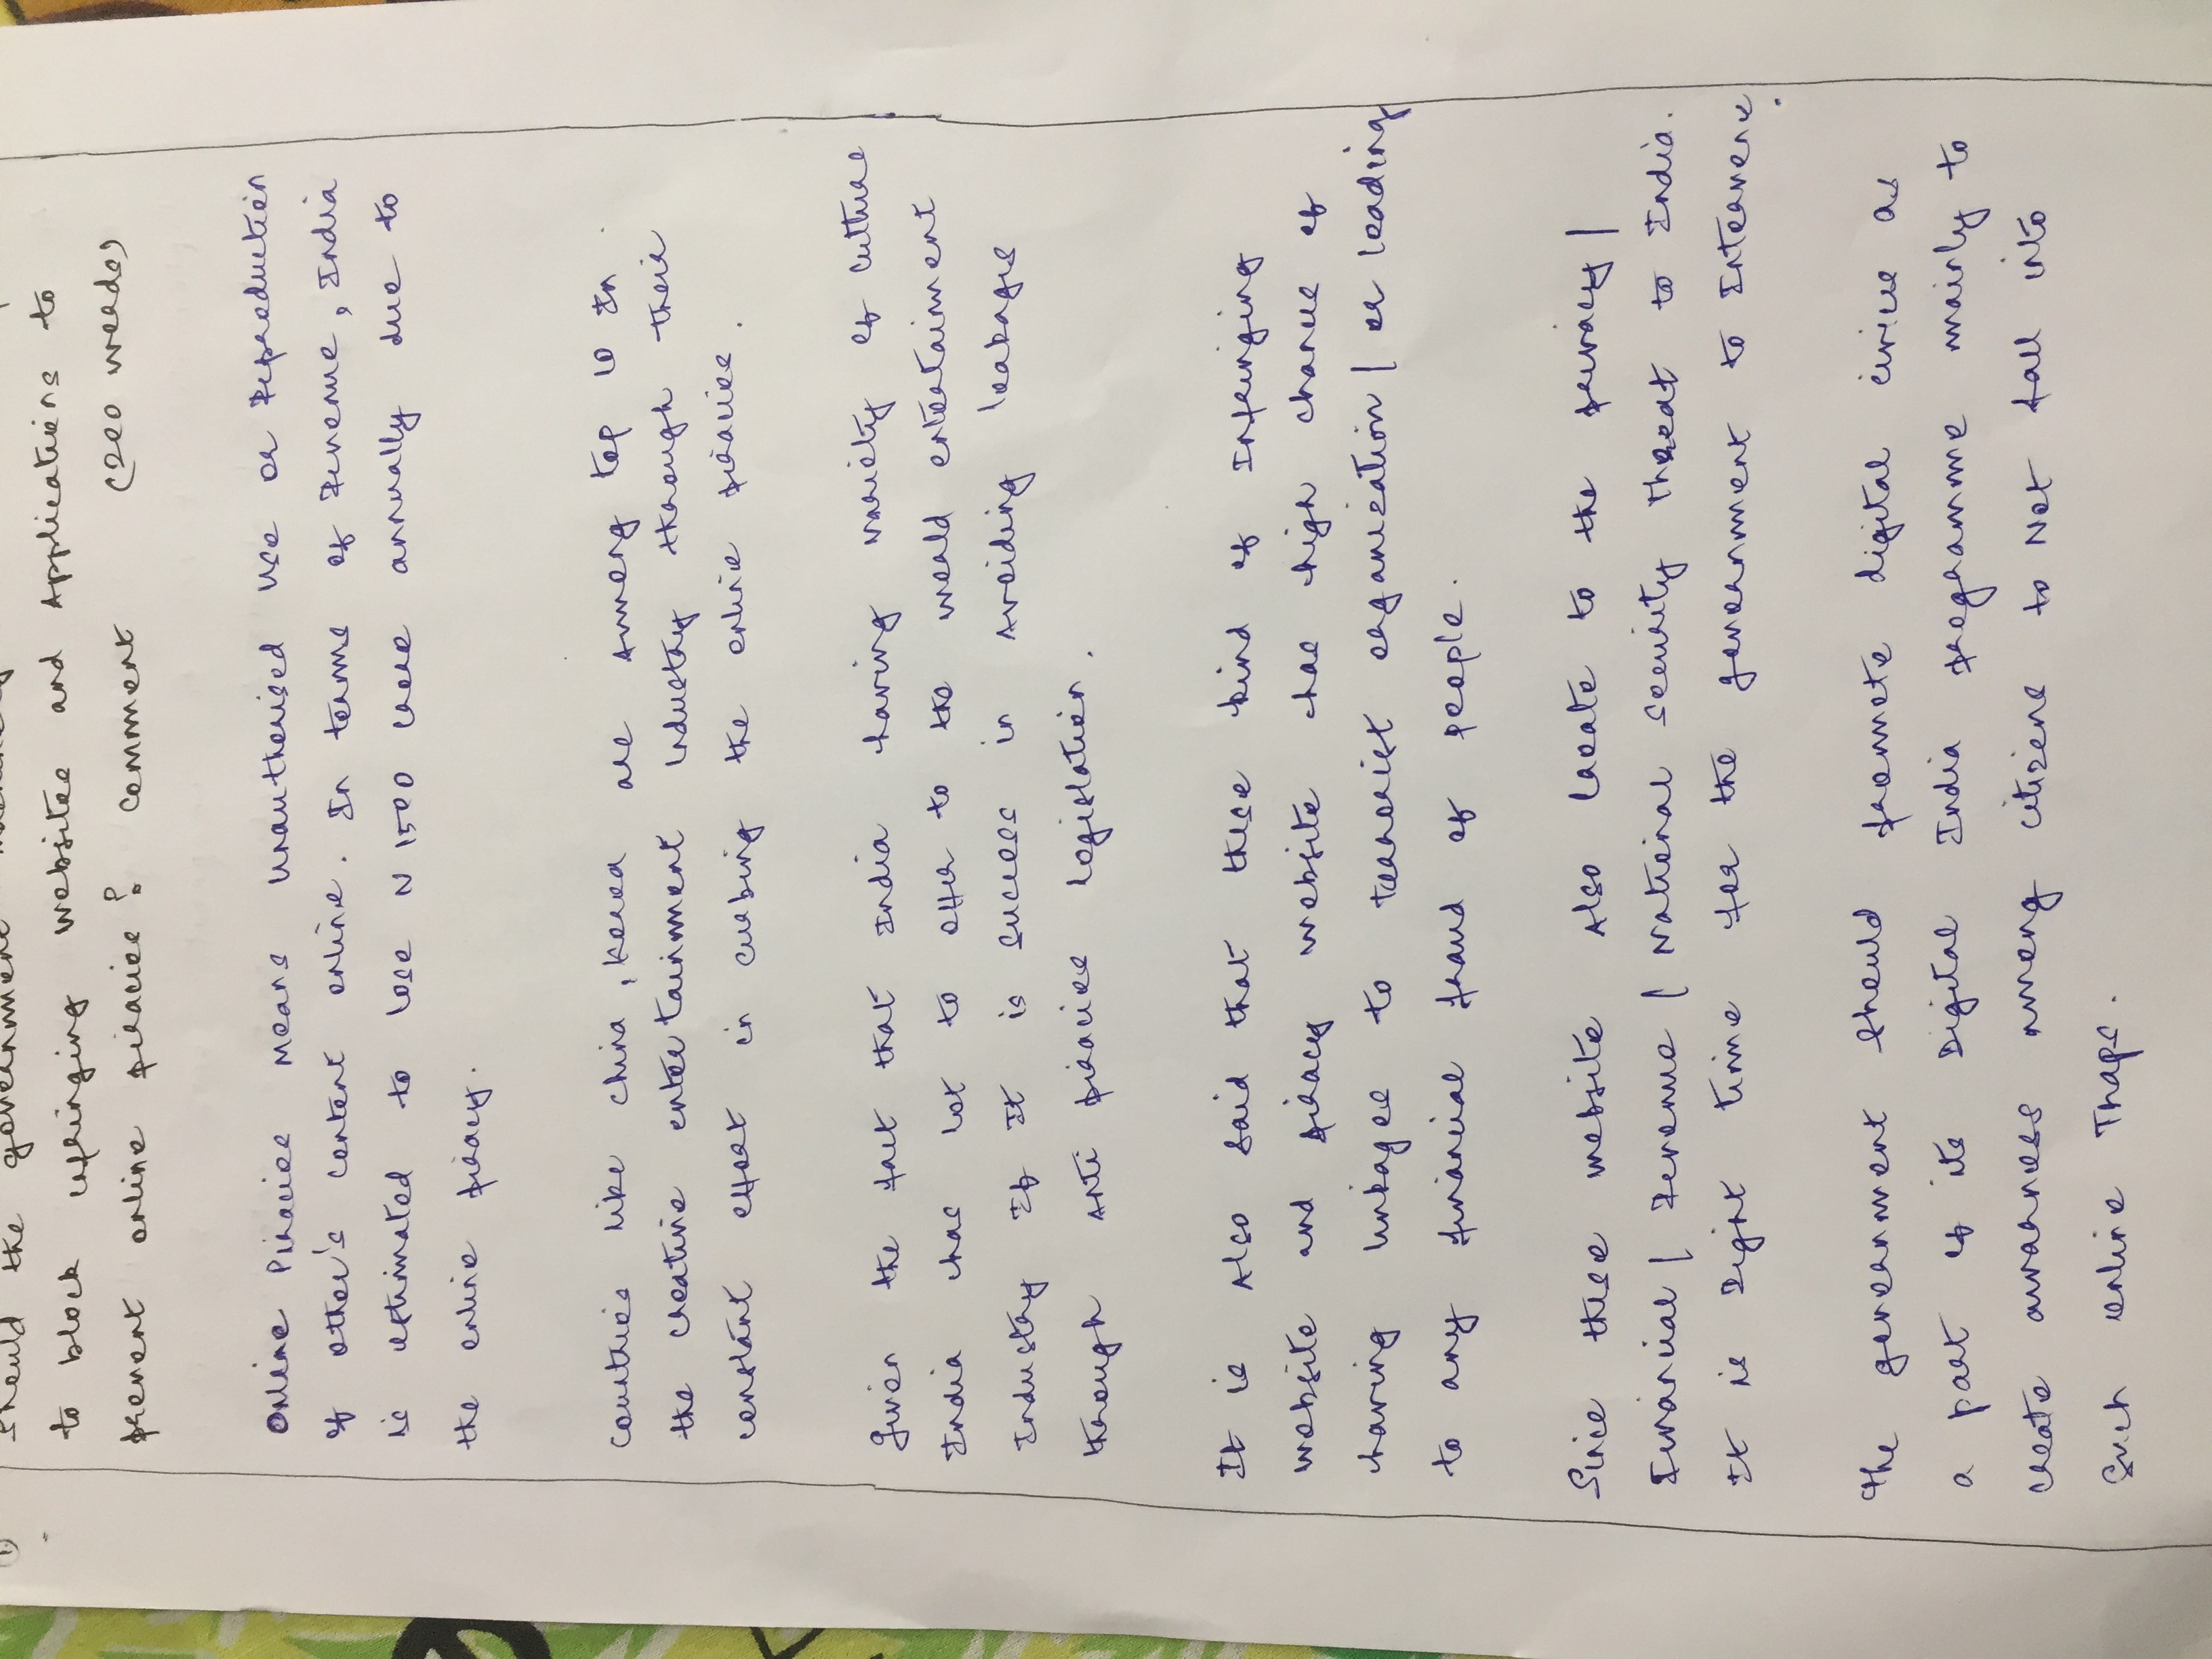 Should the government
to block infringing website and Applications to
prevent online piracies? comment (200 words)
Online Piracies means unauthorised use or Reproduction
of other's content online. In terms of Revenue, India
is estimated to lose N 1500 crore annually due to
the online piracy.
Countries like China, Korea are Among top 10 In
the creative entertainment industry through their
constant effort in curbing the online piracies.
Given the fact that India having variety of culture
India has lot to offer to the world entertainment
Industry If It is success in Avoiding leakages
through Anti piracies legislation.
It is Also said that these kind of Infringing
website and piracy website has high chance of
having linkages to terrorist organization / or leading
to any financial fraud of people.
Since these website Also create to the privacy /
Financial / Revenue / National Security threat to India.
It is Right time for the government to Intervene.
The government should promote digital civics as
a part of its Digital India programme mainly to
create awareness among citizens to Not fall into
Such online Traps.